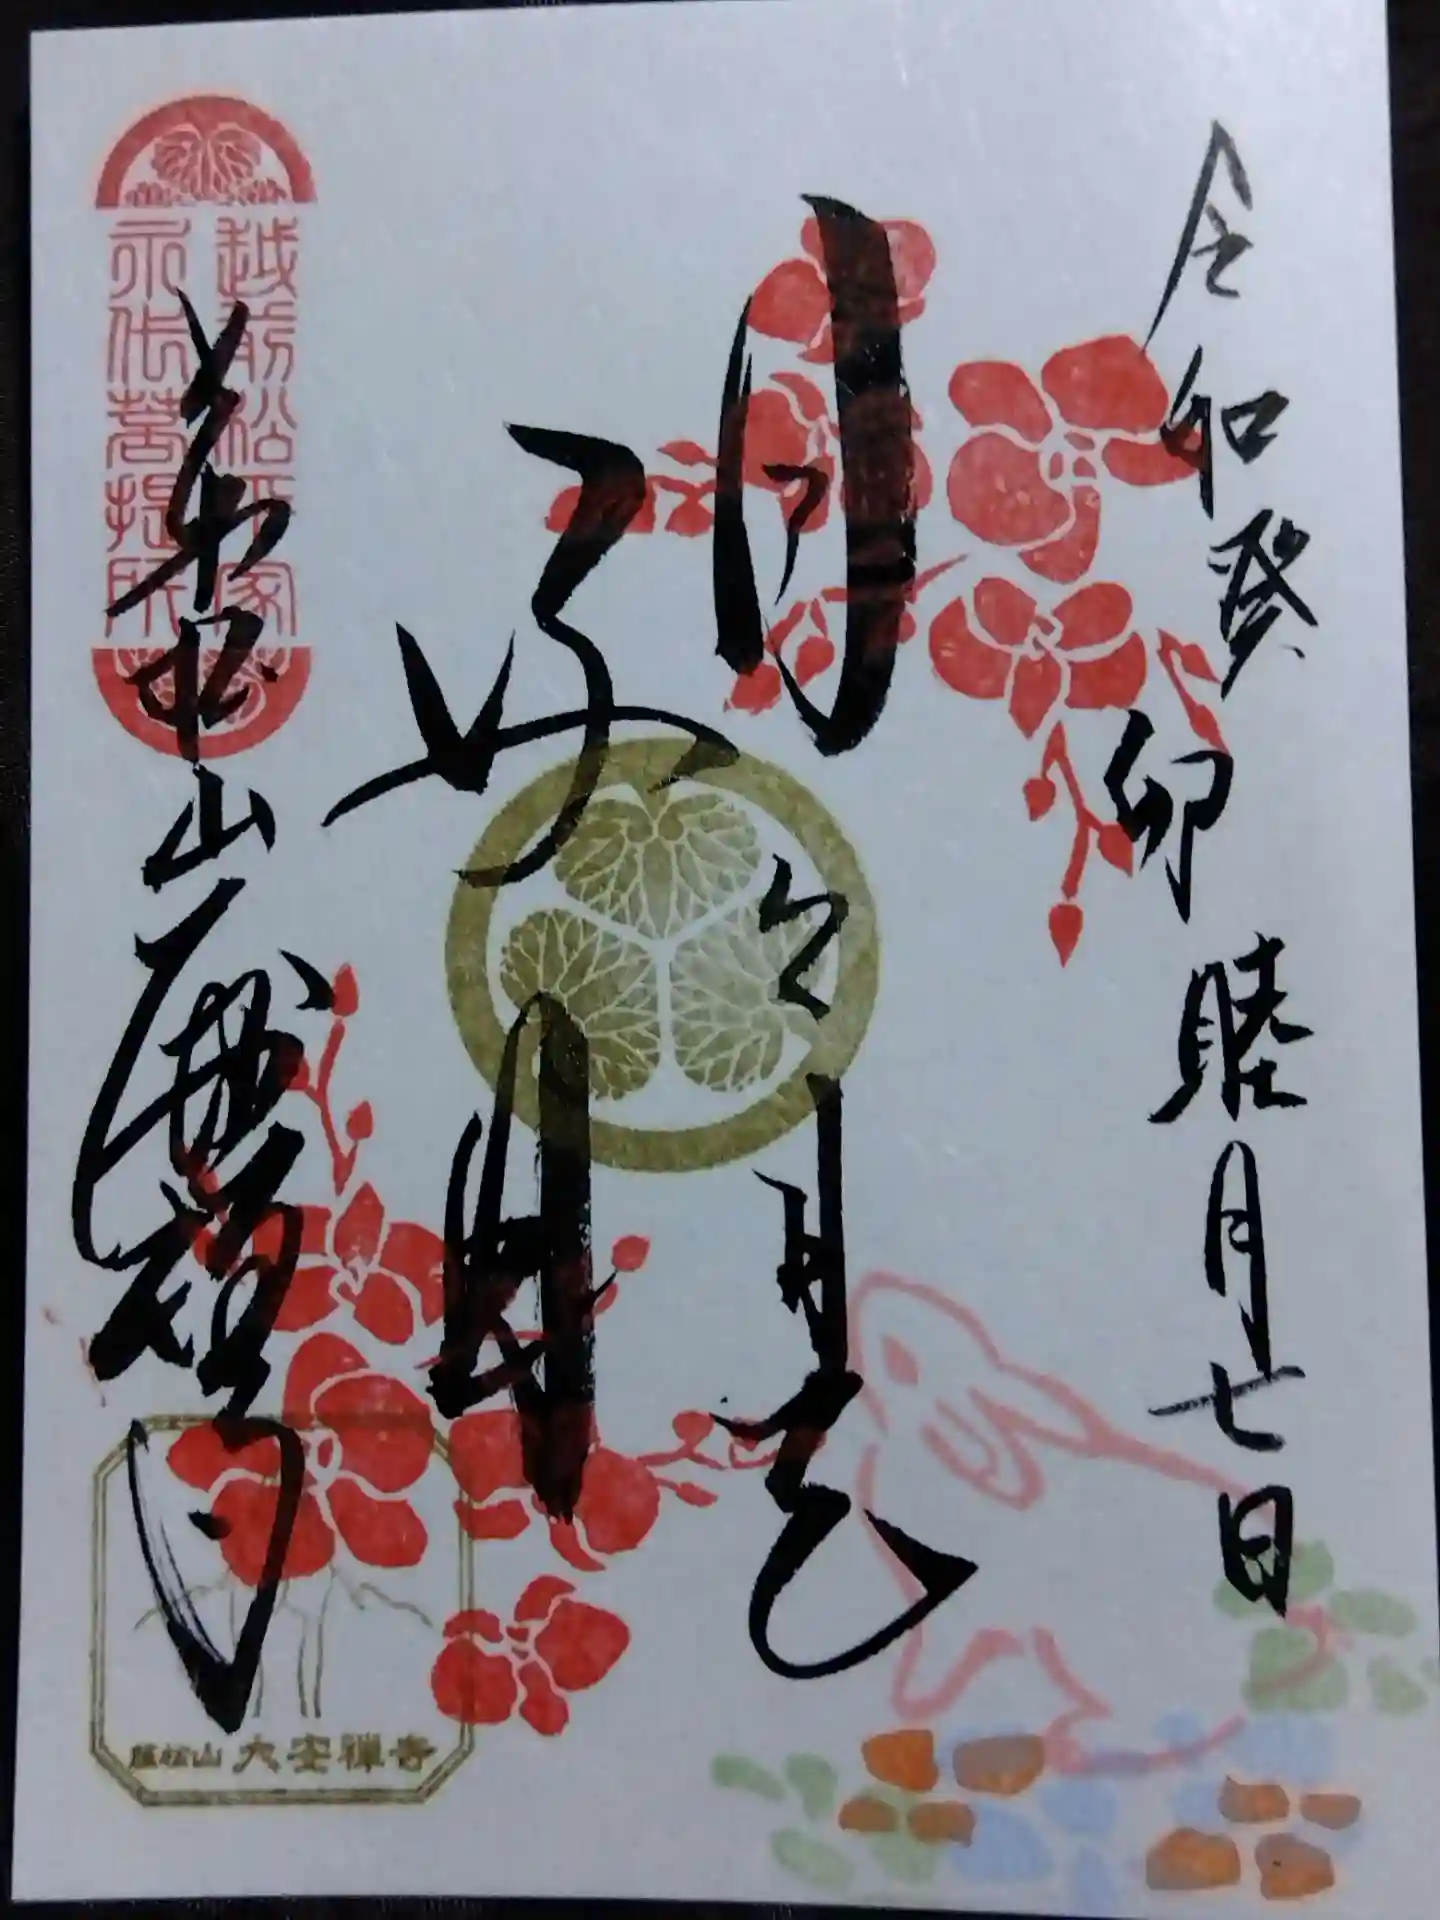 令和癸卯睦月七日
日々是
好日
越前松平家
永代菩提所
萬松山大安禅寺
萬松山 大安禅寺